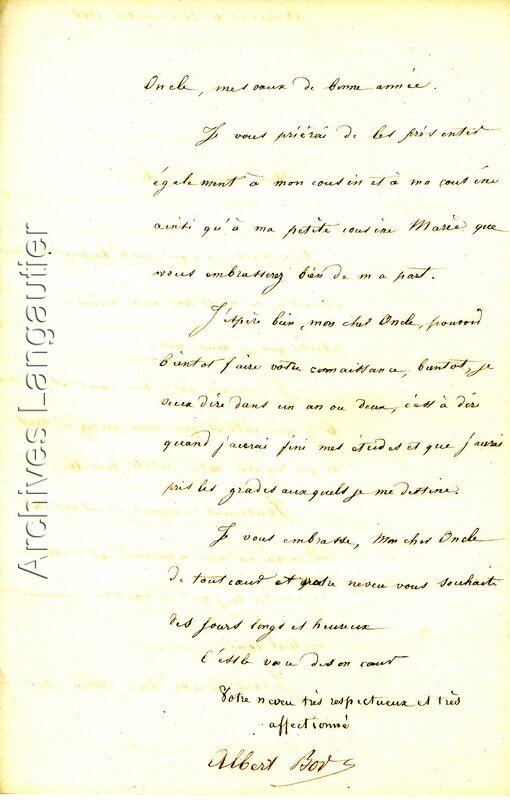 Oncle, mes vœux de bonne année.
Je vous priérai de les présenter
également à mon cousin et à ma cousine
ainsi qu'à ma petite cousine Marie que
vous embrasserez bien de ma part.
J'espère bien, mon cher Oncle, pouvoir
bientot faire votre connaissance, bientot, je
veux dire dans un an ou deux, c'est à dire
quand j'aurai fini mes études et que j'aurai
pris les grades auxquels je me destine.
Je vous embrasse, Mon cher Oncle
de tout cœur et votre neveu vous souhaite
des jours longs et heureux
C'est le vœu de son cœur
Votre neveu très respectueux et très
affectionné
Albert
Archives Langautier